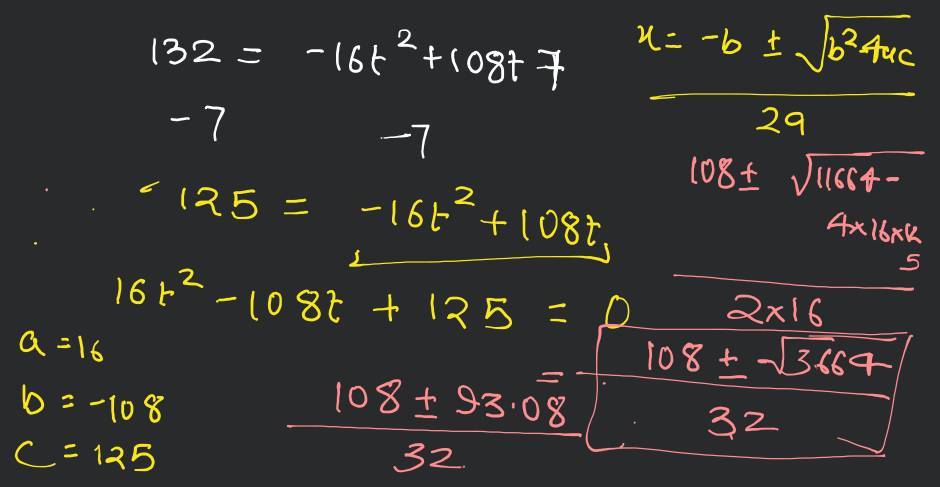 132 = -16t² + 108t 7
-7 -7
125 = -16t² + 108t
16t² - 108t + 125 = 0
a = 16
b = -108
c = 125
x = -b ± √b² 4ac
2a
108 ± √11664 -
4x16x12
5
2x16
= 108 ± √3664
32
108 ± 93.08
32